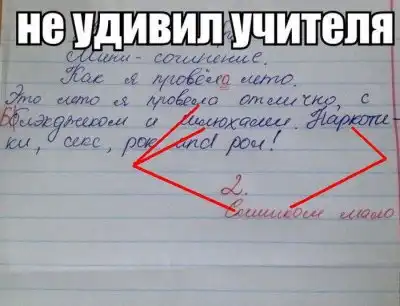 не удивил учителя
Мини-сочинение.
Как я провела лето.
Это лето я провела отлично, с
Блэкджеком и шлюхами. Наркоти-
ки, секс, рок and рол!
2.
Слишком мало